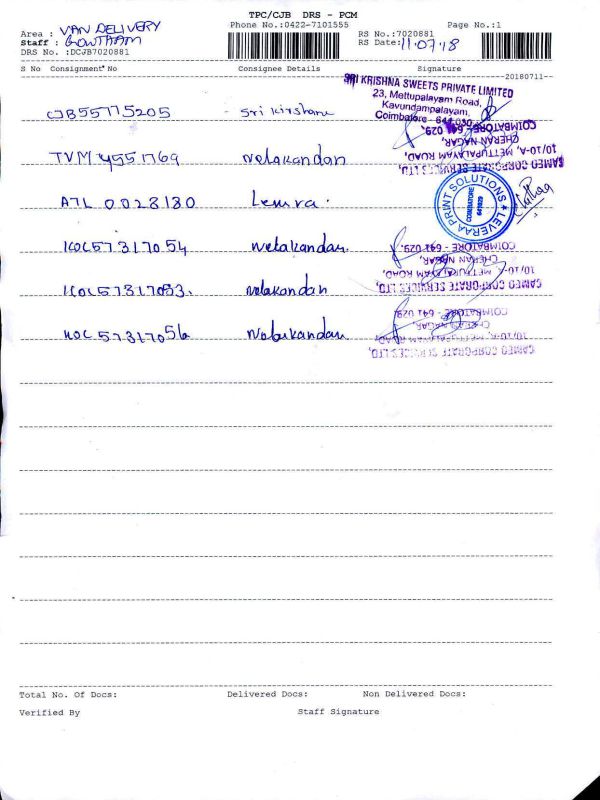 TPC/CJB DRS - PCM
Area : VAN DELIVERY Phone No.:0422-7101555 Page No.:1
Staff : GOWTHAM RS No.:7020881
DRS No. :DCJB7020881 RS Date: 11.07.18
S No Consignment No Consignee Details Signature
20180711
SRI KRISHNA SWEETS PRIVATE LIMITED
23, Mettupalayam Road,
Kavundampalayam,
Coimbatore - 641 030
CJB55775205 - Sri Kirshana
CAMEO CORPORATE SERVICES LTD,
10/10-A, METTUPALAYAM ROAD,
CHERAN NAGAR,
COIMBATORE - 641 029.
TVM4551769 Nelakandan
ATL 0028180
LEVERAA PRINT SOLUTIONS
COIMBATORE
641029
KOL57317054 Nelakandan
CAMEO CORPORATE SERVICES LTD,
10/10-A, METTUPALAYAM ROAD,
CHERAN NAGAR,
COIMBATORE - 641 029.
KOL57317033. Nelakandan
KOL57317056 Nelakandan
CAMEO CORPORATE SERVICES LTD,
10/10-A, METTUPALAYAM ROAD,
CHERAN NAGAR,
COIMBATORE - 641 029.
Total No. Of Docs: Delivered Docs: Non Delivered Docs:
Verified By Staff Signature